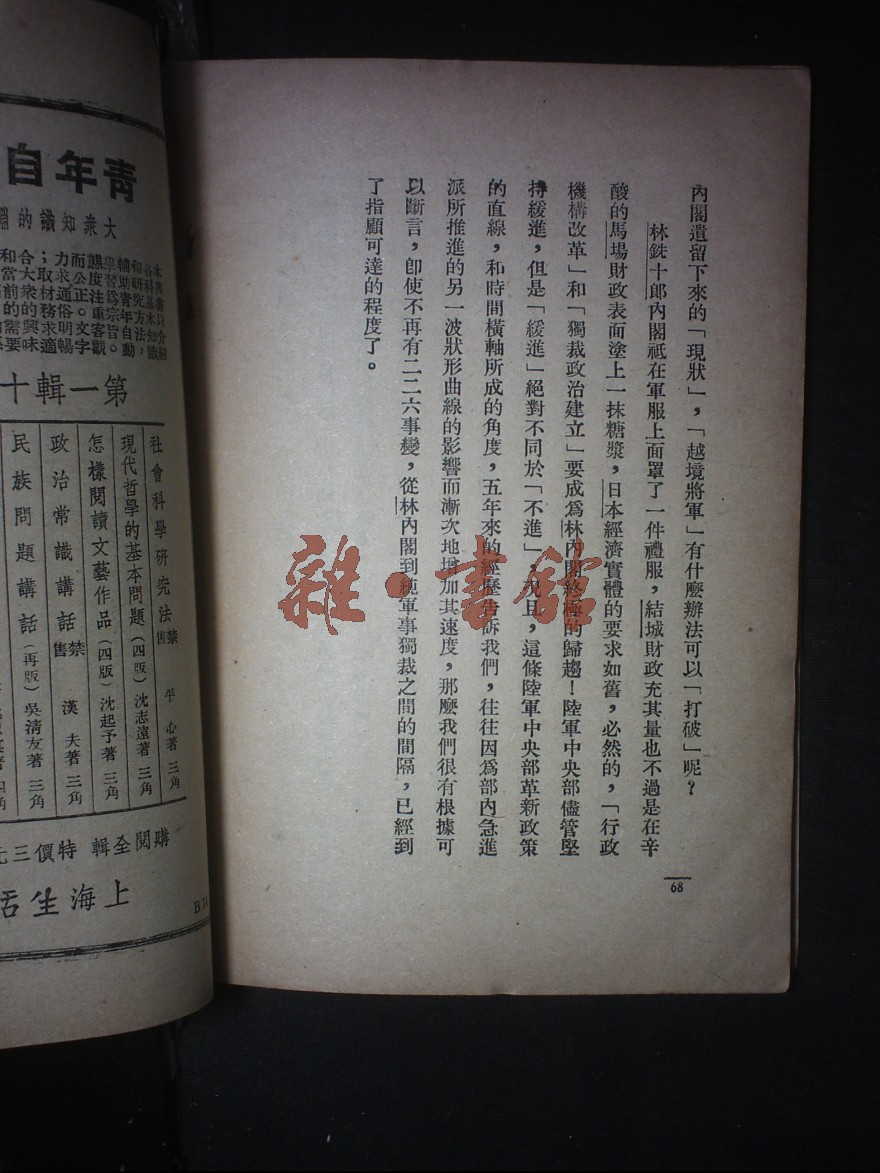 內閣遺留下來的「現狀」，「越境將軍」有什麼辦法可以「打破」呢？
林銑十郎內閣祗在軍服上面罩了一件禮服，結城財政充其量也不過是在辛
酸的馬場財政表面塗上一抹糖漿，日本經濟實體的要求如舊，必然的，「行政
機構改革」和「獨裁政治建立」要成爲林內閣終極的歸趨！陸軍中央部儘管堅
持緩進，但是「緩進」絕對不同於「不進」，況且，這條陸軍中央部革新政策
的直線，和時間橫軸所成的角度，五年來的經歷告訴我們，往往因爲部內急進
派所推進的另一波狀形曲線的影響而漸次地增加其速度，那麼我們很有根據可
以斷言，卽使不再有二二六事變，從林內閣到純軍事獨裁之間的間隔，已經到
了指顧可達的程度了。
68
雜·書館
青年自
大衆知識的
本叢書只介紹
各科基本知識
和研究方法，
輔助靑年自動
學習爲宗旨。
態度注重客觀
而公正。文字
力求通俗明暢
；取材務求適
合大衆的興味
和當前的需要
第一輯十
社會科學研究法 禁售 平心著 三角
現代哲學的基本問題（四版）沈志遠著 三角
怎樣閱讀文藝作品（四版）沈起予著 三角
政治常識講話 禁售 漢夫著 三角
民族問題講話（再版）吳清友著 三角
購閱全輯 特價三元
上海生活